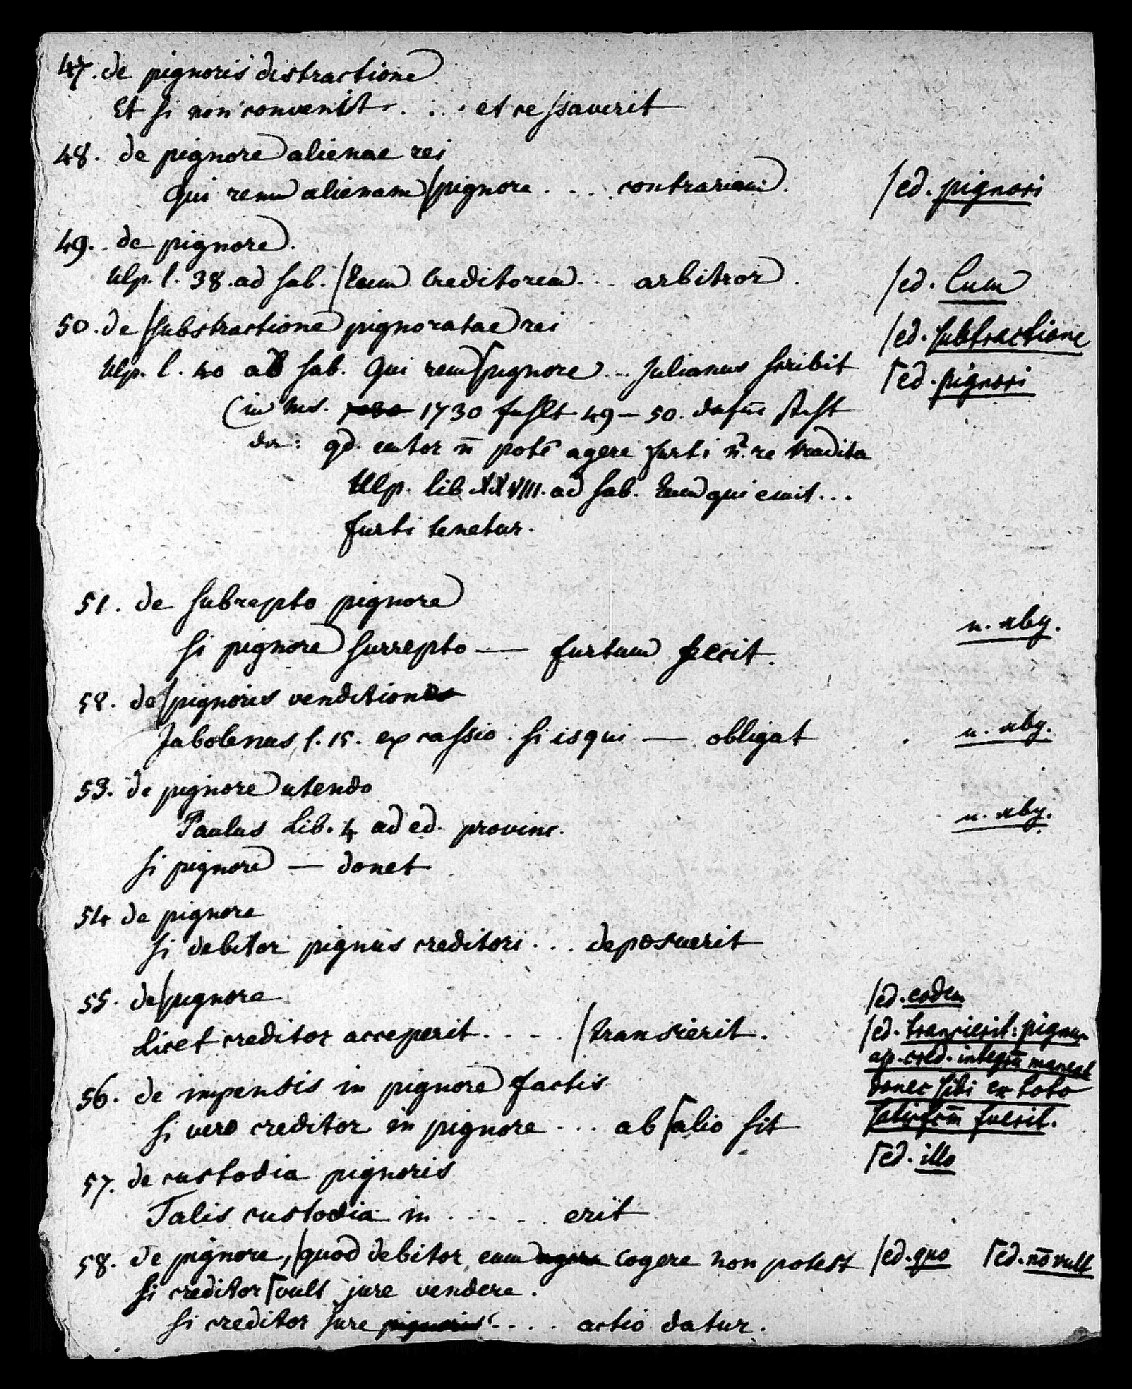 47. de pignoris distractione
Et si non convenit . . . et cessaverit
48. de pignore alienae rei
Qui rem alienam /pignore . . . contrariam. /ed. pignori
49. de pignore.
Ulp. l. 38. ad Sab. /Eum Creditorem . . . arbitror. /ed. Cum
50. de /substractione pignoratae rei /ed. subtractione
Ulp. l. 40 ad Sab. Qui rem ⌈pignore . . . Julianus scribit ⌈ed. pignori
(in Ms. 1730 fehlt 49 – 50. dafür steht
da: qd. emtor n̄ potē agere furti n̄ re tradita
Ulp. lib. XXVIII. ad Sab. Eum qui emit . . .
furti tenetur.
51. de subrepto pignore
Si pignore surrepto — furtum fecit. n. abg.
52. de /pignoris venditione
Jabolenus l. 15. ex cassio. Si is qui — obligat n. abg.
53. de pignore utendo
Paulus Lib. 4 ad ed. provinc. n. abg.
Si pignore — donet
54 de pignore
Si debitor pignus creditori . . . deposuerit
55. de /pignore /ed. eodem
Licet creditor acceperit . . . . /transierit. /ed. transierit: pignus
ap. cred. integrm̄ manet
donec sibi ex toto
56. de impensis in pignore factis
Si vero creditor in pignore . . . ab ⌈alio sit satisfctm̄ fuerit.
⌈ed. illo
57. de custodia pignoris
Talis custodia in . . . . erit
58. de pignore, /quod debitor eum cogere non potest /ed. quo ⌈ed. nō vult
Si creditor ⌈vult jure vendere.
Si creditor jure pignoris . . . . actio datur.